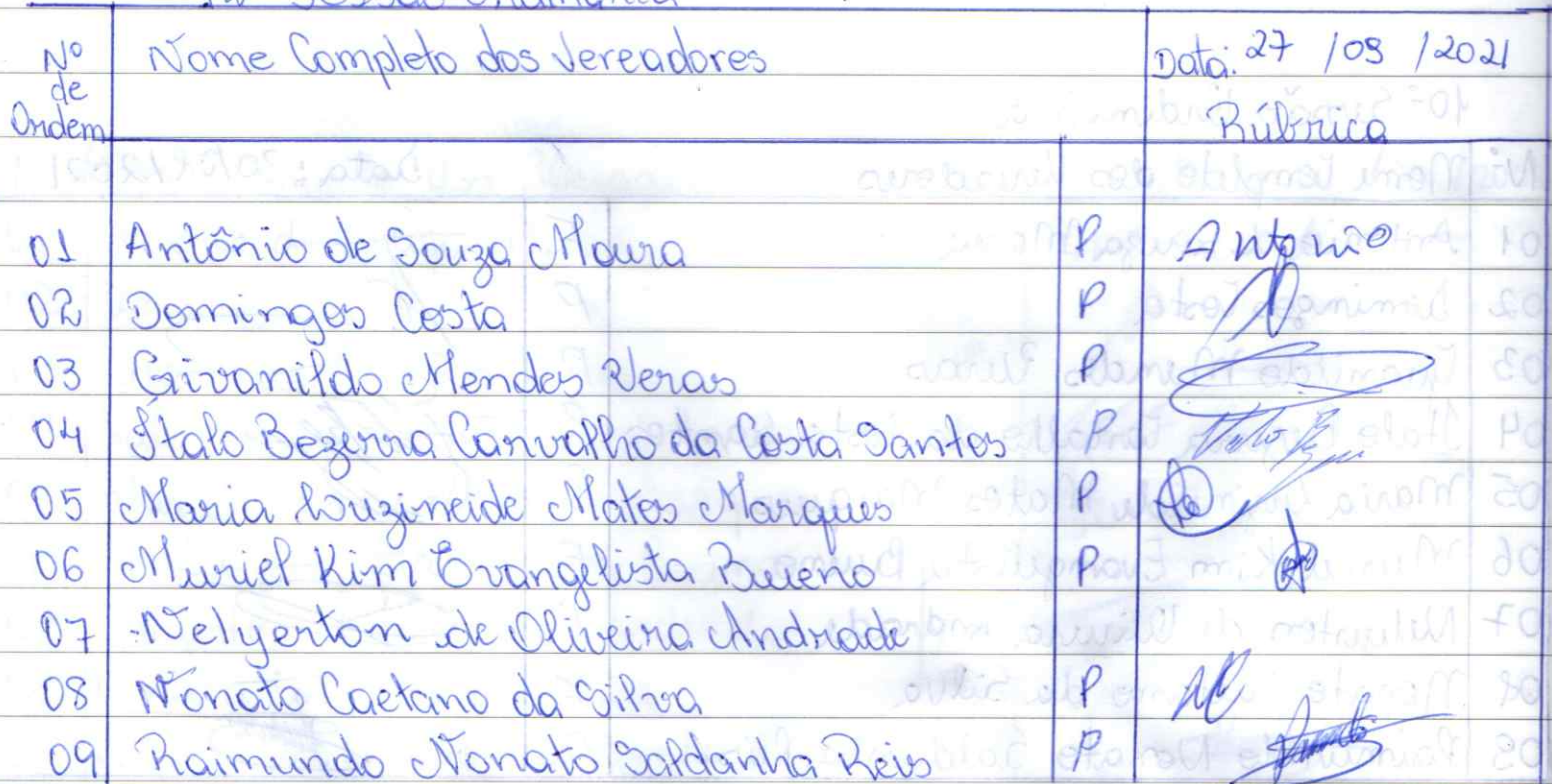 Sessão Ordinária
Nº de Ordem Nome Completo dos Vereadores Data: 27 /09 /2021
Rúbrica
01 Antônio de Souza Moura P Antonio
02 Domingos Costa P
03 Givanildo Mendes Veras P
04 Ítalo Bezerra Carvalho da Costa Santos P
05 Maria Luzineide Matos Marques P
06 Muriel Kim Evangelista Bueno P
07 Nelyerton de Oliveira Andrade
08 Nonato Caetano da Silva P
09 Raimundo Nonato Saldanha Reis P